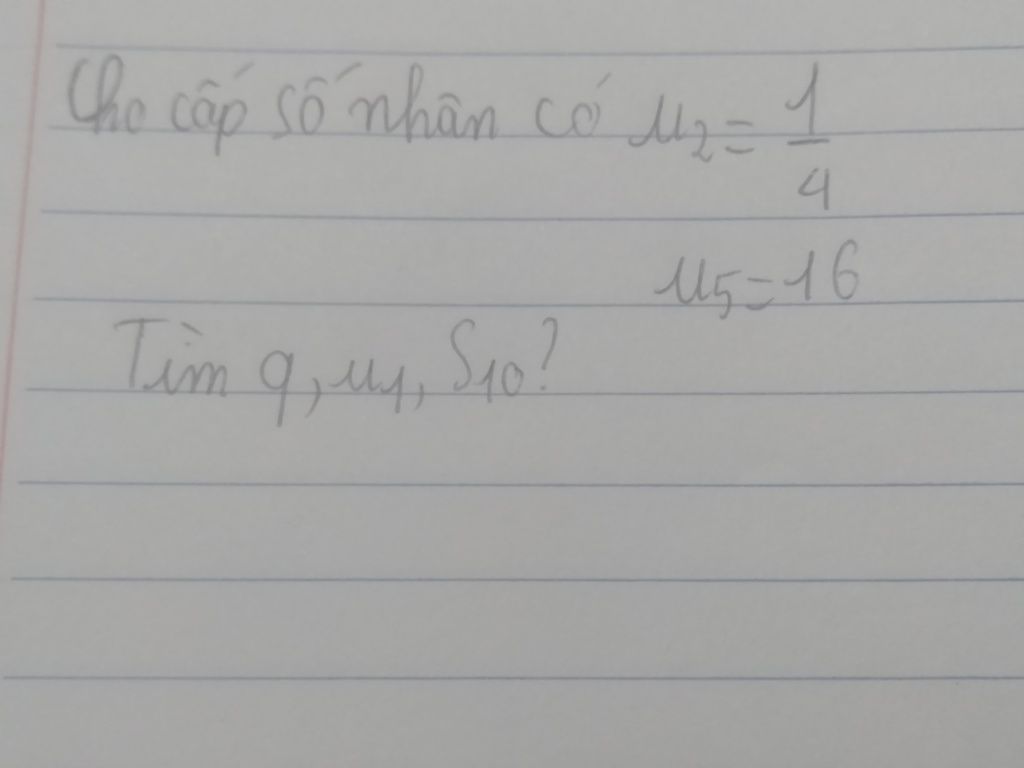 Cho cấp số nhân có u₂ = 1/4
u₅ = 16
Tìm q, u₁, S₁₀?